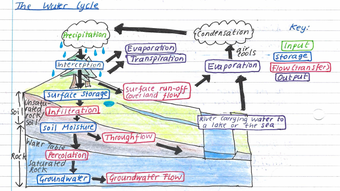 The Water Cycle
Precipitation
Condensation
Key:
Input
Storage
Flow (transfer)
Output
air
cools
Evaporation
Transpiration
Interception
Evaporation
Surface run-off
(overland flow)
Surface Storage
Infiltration
Soil
Unsatu-
rated
rock
Soil
Soil Moisture
River carrying water to
a lake or the sea
Throughflow
Water Table
Percolation
Rock
Saturated
Rock
Groundwater
Groundwater Flow